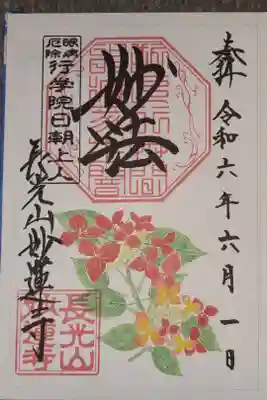 奉拝 令和六年六月一日
妙法
眼病
厄除
行学院日朝上人
長光山妙蓮寺
長光山
妙蓮寺